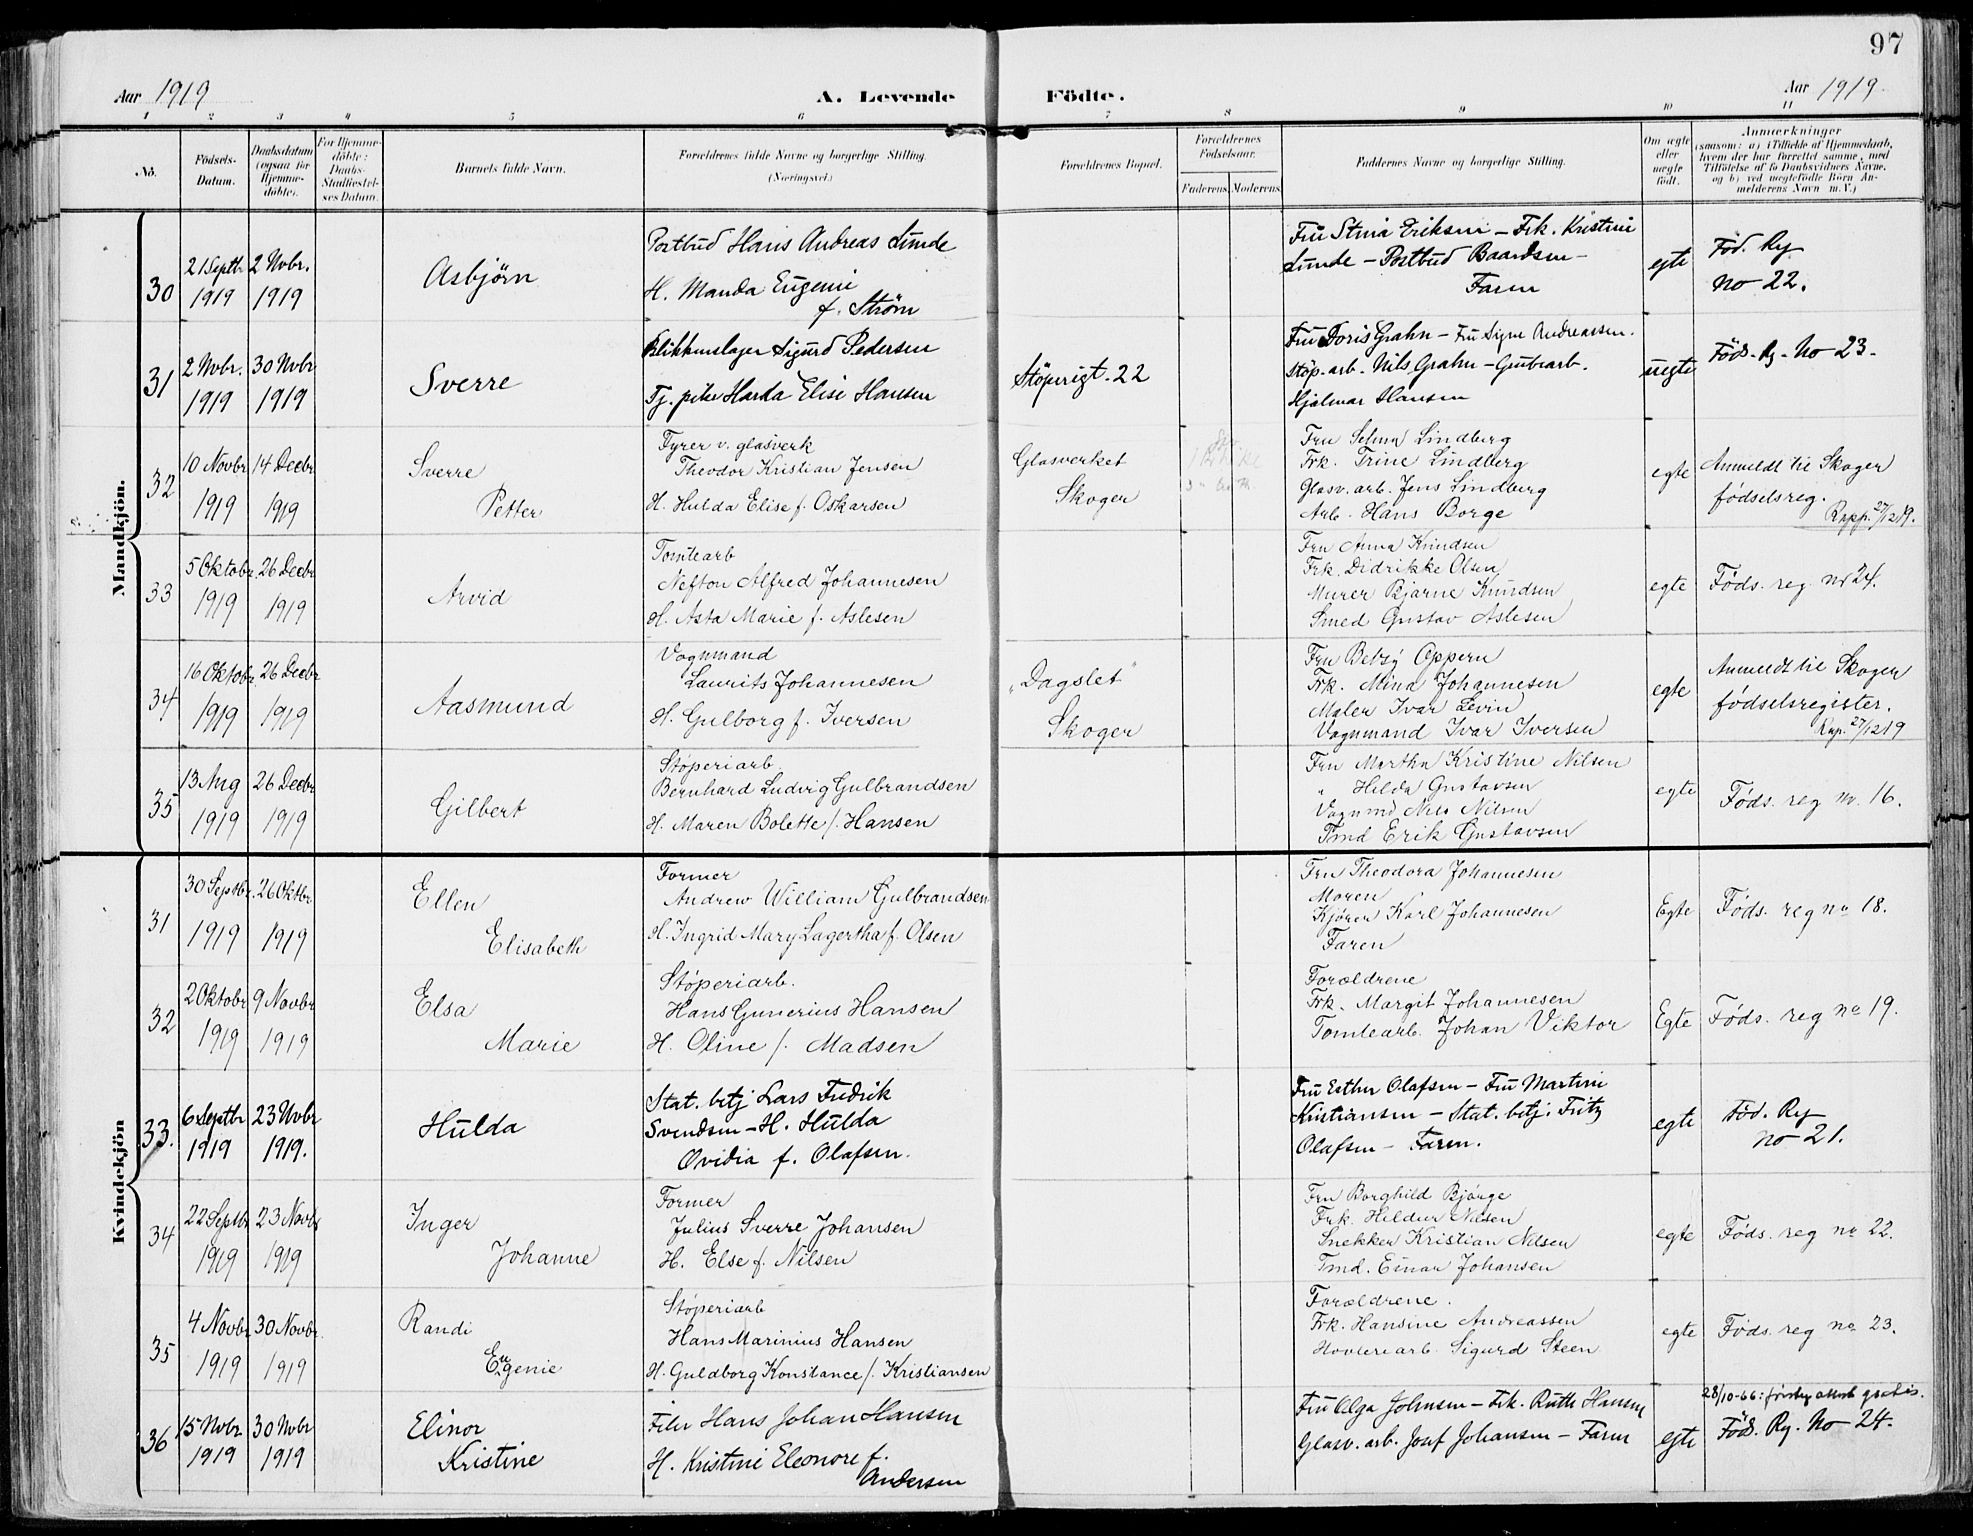 97
Aar 1919
A. Levende
Födte.
Aar 1919
1 2 3 4 5 6 7 8 9 10 11
No.
Födsels-
Datum.
Daabsdatum
(ogsaa for
Hjemme-
döbte).
For Hjemme-
döbte:
Daabs-
Stadfæstel-
ses Datum.
Barnets fulde Navn.
Forældrenes fulde Navne og borgerlige Stilling.
(Næringsvei.)
Forældrenes Bopæl.
Forældrenes
Födselsaar.
Faderens. Moderens.
Faddernes Navne og borgerlige Stilling.
Om ægte
eller
uægte
født.
Anmærkninger
(saasom: a) i Tilfælde af Hjemmedaab,
hvem der har forrettet samme, med
Tilföielse af to Daabsvidners Navne,
og b) ved uægtefödte Börn An-
melderens Navn m. V.)
Mandkjön.
30
21 Septbr
1919
2 Novbr.
1919
Asbjörn
Postbud Hans Andreas Lunde
H. Manda Eugenie
f. Ström
Fru Stina Eriksen – Frk. Kristine
Lunde – Postbud Baardsen –
Faren
egte
Föd. Rg
No 22.
31
2 Nvbr.
1919
30 Nvbr
1919
Sverre
Blikkenslager Sigurd Pedersen
Tj. pike Harda Elise Hansen
Stöperigt. 22
Fru Doris Grahn – Fru Signe Andreassen.
Stöp. arb. Nils Grahn – Grubearb.
Hjalmar Hansen
uegte
Föds. Rg. No 23.
32
10 Novbr
1919
14 Decbr
1919
Sverre
Petter
Fyrer v. glasverk
Theodor Kristian Jensen
H. Hulda Elise f. Oskarsen
Glasverket
Skoger
Fru Selma Lindberg
Frk. Trine Lindberg
Glasv. arb. Jens Lindberg
Arb. Hans Borge
egte
Anmeldt til Skoger
fødselsreg.
Rapp. 27/12 19.
33
5 Oktobr
1919
26 Decbr
1919
Arvid
Tomtearb
Nefton Alfred Johannesen
H. Asta Marie f. Aslesen
Fru Anna Knudsen
Frk. Didrikke Olsen
Murer Bjarne Knudsen
Smed Gustav Aslesen
egte
Føds. reg nr 24.
34
16 Oktobr.
1919
26 Decbr
1919
Aasmund
Vognmand
Laurits Johannesen
H. Gulborg f. Iversen
„Dagslet"
Skoger
Fru Betzy Oppern
Frk. Mina Johannesen
Maler Ivar Levin
Vognmand Ivar Iversen
egte
Anmeldt til Skoger
fødselsregister.
Rap. 27/12 19
35
13 Aug
1919
26 Decbr
1919
Gilbert
Støperiarb.
Bernhard Ludvig Gulbrandsen
H. Maren Bolette f. Hansen
Fru Martha Kristine Nilsen
„ Hilda Gustavsen
Vognmd Nils Nilsen
Tmd Erik Gustavsen
egte
Føds. reg nr. 16.
Kvindekjön
31
30 Septbr.
1919
26 Oktbr.
1919
Ellen
Elisabeth
Former
Andrew William Gulbrandsen
H. Ingrid Mary Lagertha f. Olsen
Fru Theodora Johannesen
Moren
Kjører Karl Johannesen
Faren
Egte
Føds. reg no 18.
32
2 Oktobr
1919
9 Novbr
1919
Elsa
Marie
Støperiarb.
Hans Gunerius Hansen
H. Oline f. Madsen
Forældrene
Frk. Margit Johannesen
Tomtearb. Johan Viktor
Egte
Føds. reg no 19.
33.
6 Septbr
1919
23 Nvbr
1919.
Hulda
Stat. betj Lars Fredrik
Svendsen – H. Hulda
Ovidia f. Olafsen.
Fru Esther Olafsen – Fru Martine
Kristiansen – Stat. betj. Fritz
Olafsen – Faren.
egte
Föd. Rg
No 21.
34
22 Septbr
1919
23 Novbr
1919
Inger
Johanne
Former
Julius Sverre Johansen
H. Else f. Nilsen
Fru Borghild Bjørge
Frk. Hildur Nilsen
Snekker Kristian Nilsen
Tmd. Einar Johansen
egte
Føds. reg no 22.
35
4 Novbr
1919
30 Novbr.
1919
Randi
Eugenie
Støperiarb
Hans Marinius Hansen
H. Guldborg Konstance f. Kristiansen
Forældrene.
Frk. Hansine Andreassen
Hovleriarb. Sigurd Steen
egte
Føds. reg no 23.
36
15 Nvbr
1919
30 Nvbr
1919
Elinor
Kristine
Filer Hans Johan Hansen
H. Kristine Eleonore f.
Andersen
Fru Olga Johnsen – Frk. Ruth Hansen
Glasv. arb. Josef Johansen – Faren
egte
28/10-66: attest gratis.
Föd. Rg. No 24.